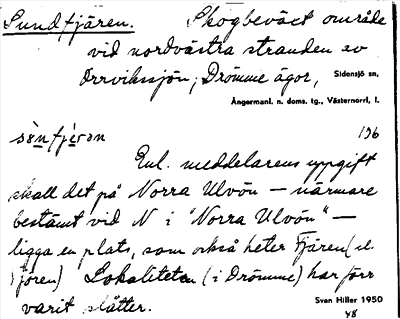 Sundfjären. Skogbeväxt område
vid nordvästra stranden av
Orrvikssjön; Drömme ägor, Sidensjö sn,
Ångermanl. n. doms. tg., Västernorrl. l.
196
Enl. meddelarens uppgift
skall det på Norra Ulvön – närmare
bestämt vid N i "Norra Ulvön" –
ligga en plats, som också heter Fjären (el.
Fjören) Lokaliteten (i Drömme) har förr
varit slåtter.
Sven Hiller 1950
48